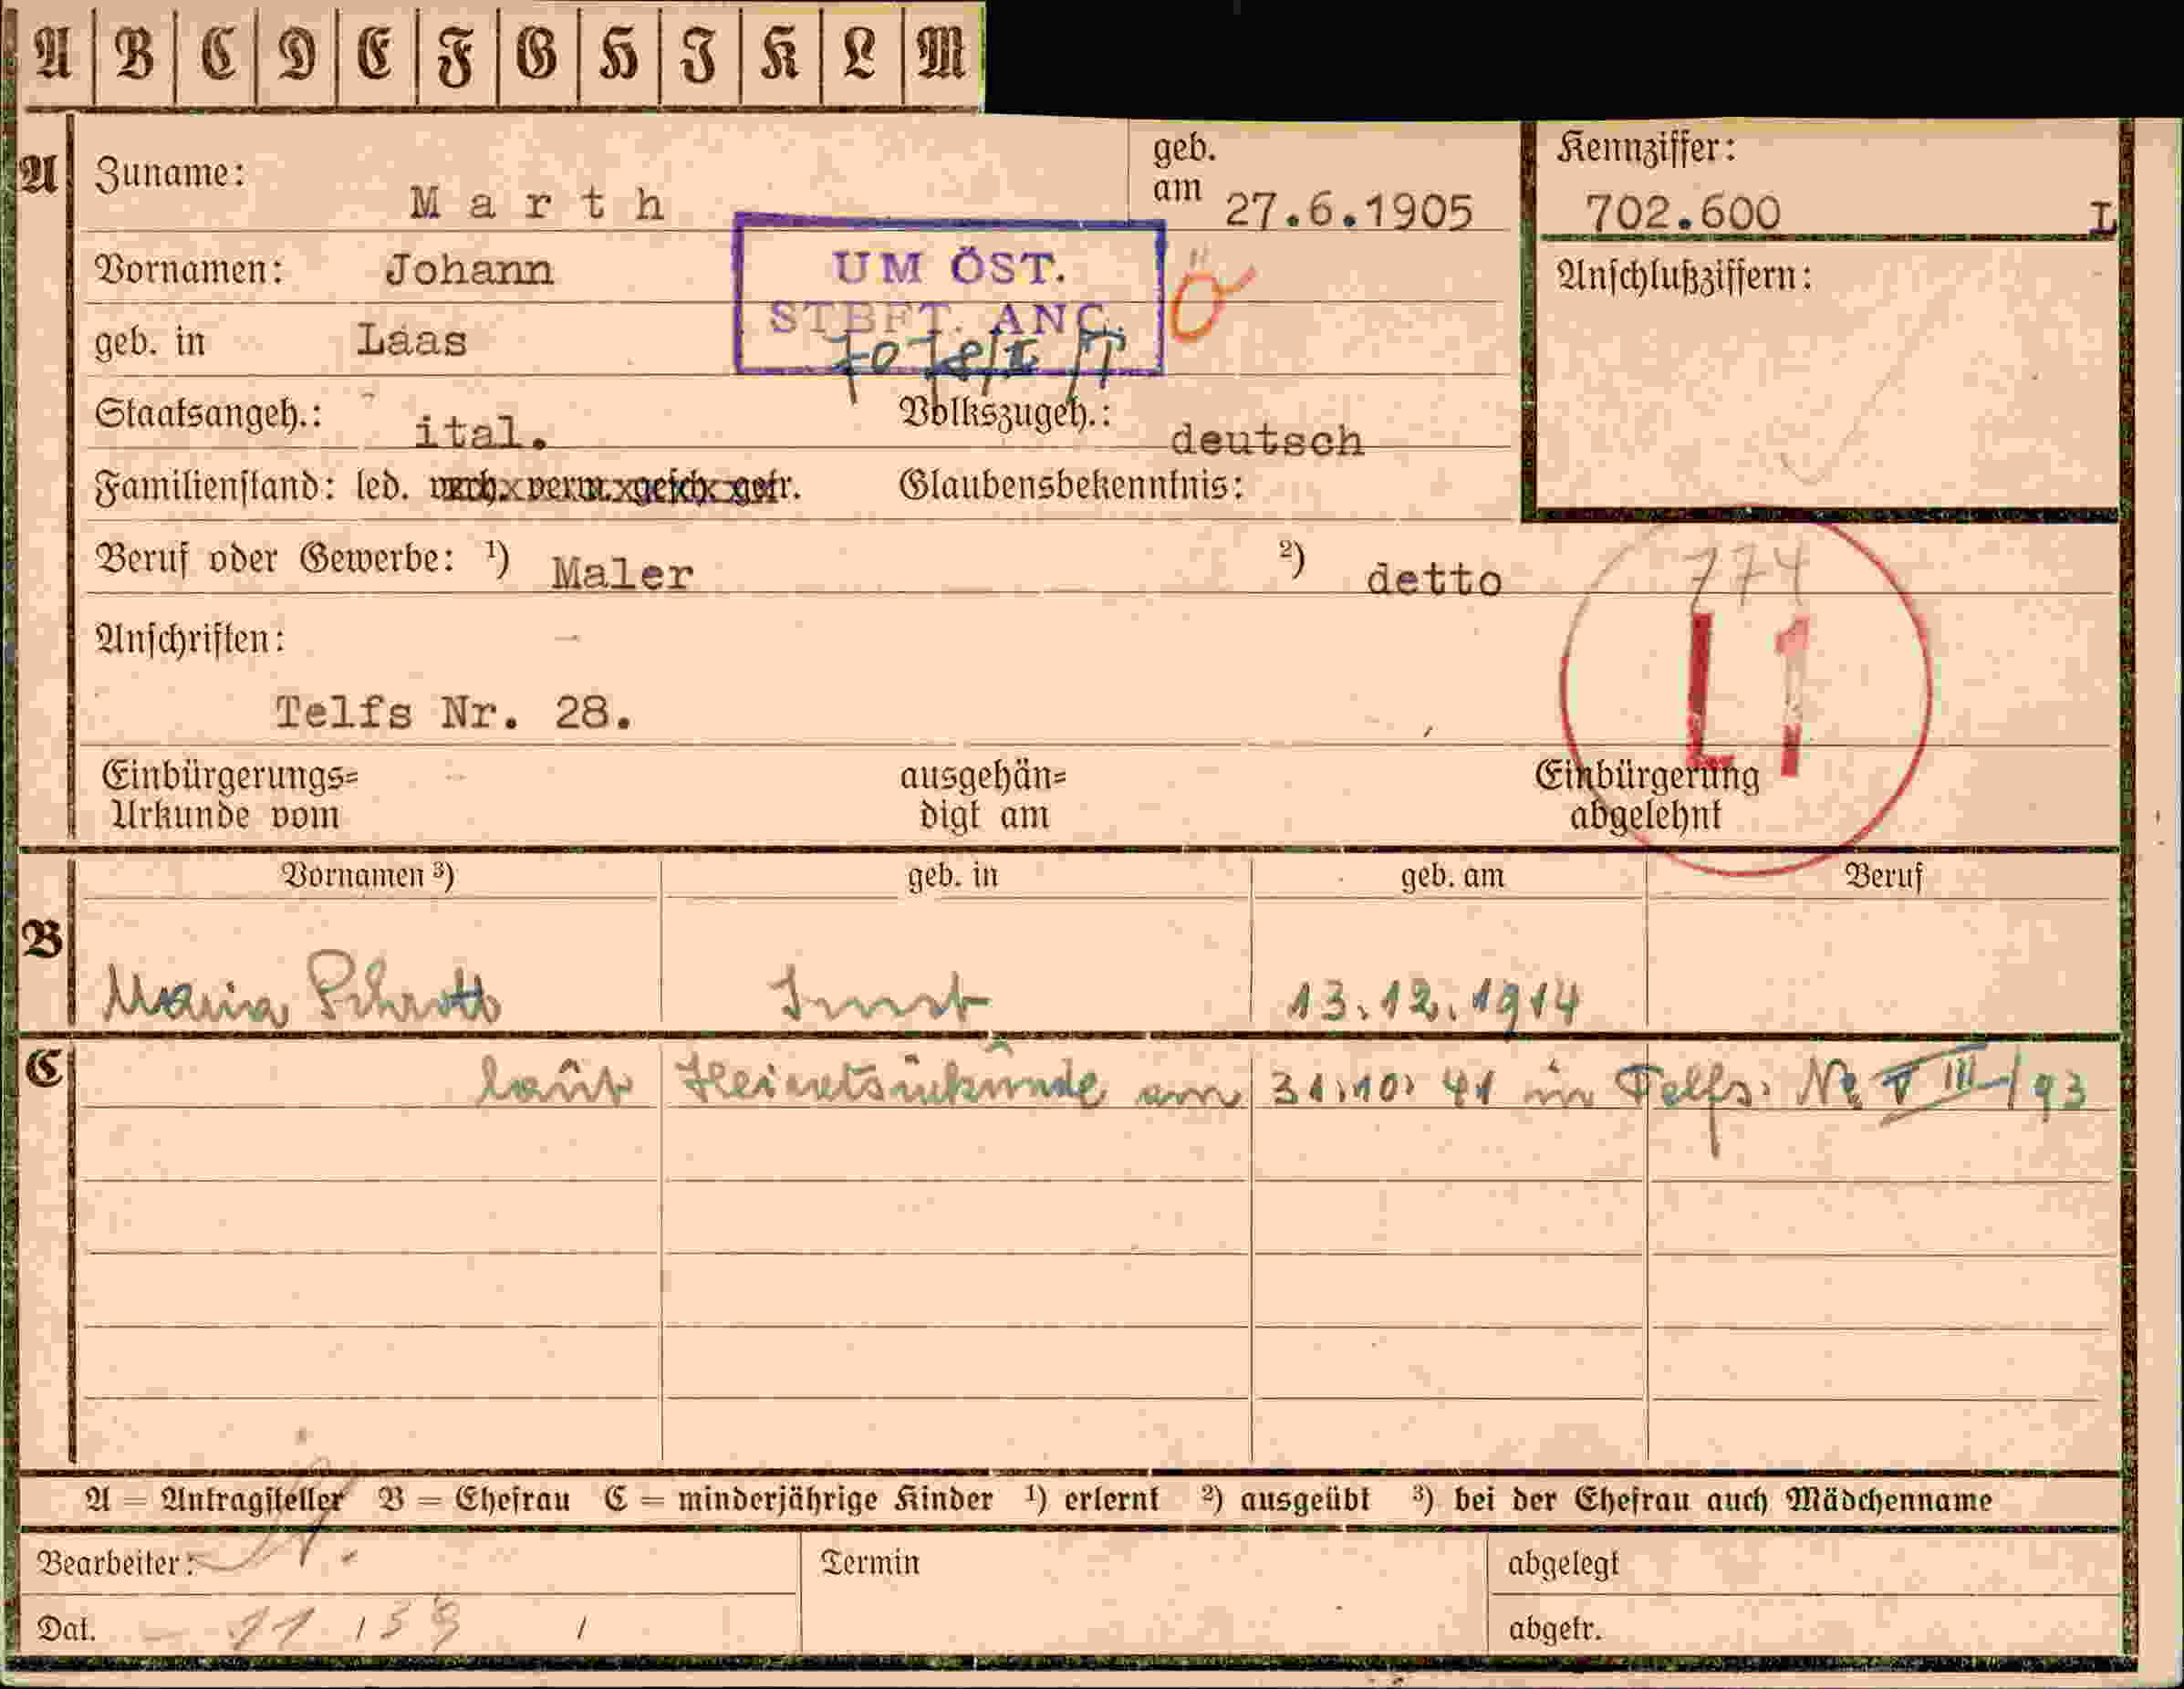 A B C D E F G H I K L M
A Zuname: Marth geb. am 27.6.1905 Kennziffer: 702.600 L
Vornamen: Johann UM ÖST. Ö Anschlußziffern:
geb. in Laas STBFT. ANG.
Staatsangeh.: ital. Volkszugeh.: deutsch
Familienstand: led. verh. verw. gesch. getr. Glaubensbekenntnis:
Beruf oder Gewerbe: ¹) Maler ²) detto 774
Anschriften: L1
Telfs Nr. 28.
Einbürgerungs= Urkunde vom ausgehän= digt am Einbürgerung abgelehnt
Vornamen ³) geb. in geb. am Beruf
B Maria Schrott Imst 13.12.1914
C laut Heiratsurkunde am 31.10. 41 in Telfs. Nr. VIII/93
A = Antragsteller B = Ehefrau C = minderjährige Kinder ¹) erlernt ²) ausgeübt ³) bei der Ehefrau auch Mädchenname
Bearbeiter: Termin abgelegt
Dat. 11 39 abgetr.